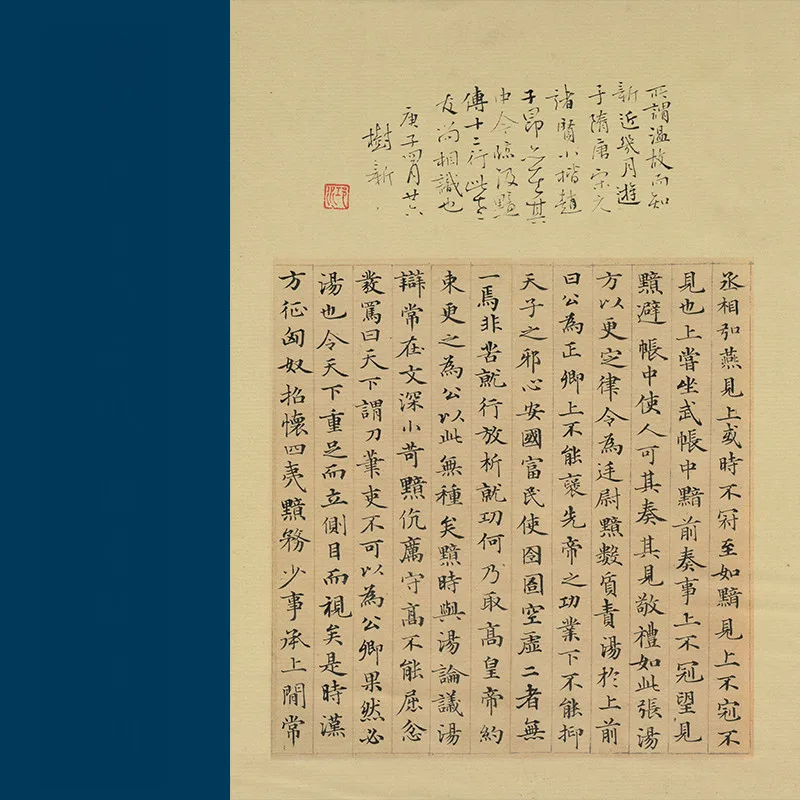 所謂温故而知
新近幾月遊
于隋唐宋元
諸賢小楷趙
子昂其
中今臨汲黯
傳十二行此
友尚相識也
庚子四月廿六
樹新
丞相弘燕見上或時不冠至如黯見上不冠不
見也上嘗坐武帳中黯前奏事上不冠望見
黯避帳中使人可其奏其見敬禮如此張湯
方以更定律令為廷尉黯數質責湯於上前
曰公為正卿上不能襃先帝之功業下不能抑
天子之邪心安國富民使囹圄空虛二者無
一焉非苦就行放析就功何乃取高皇帝約
束更之為公以此無種矣黯時與湯論議湯
辯常在文深小苛黯伉厲守高不能屈忿
發罵曰天下謂刀筆吏不可以為公卿果然必
湯也令天下重足而立側目而視矣是時漢
方征匈奴招懷四夷黯務少事承上閒常